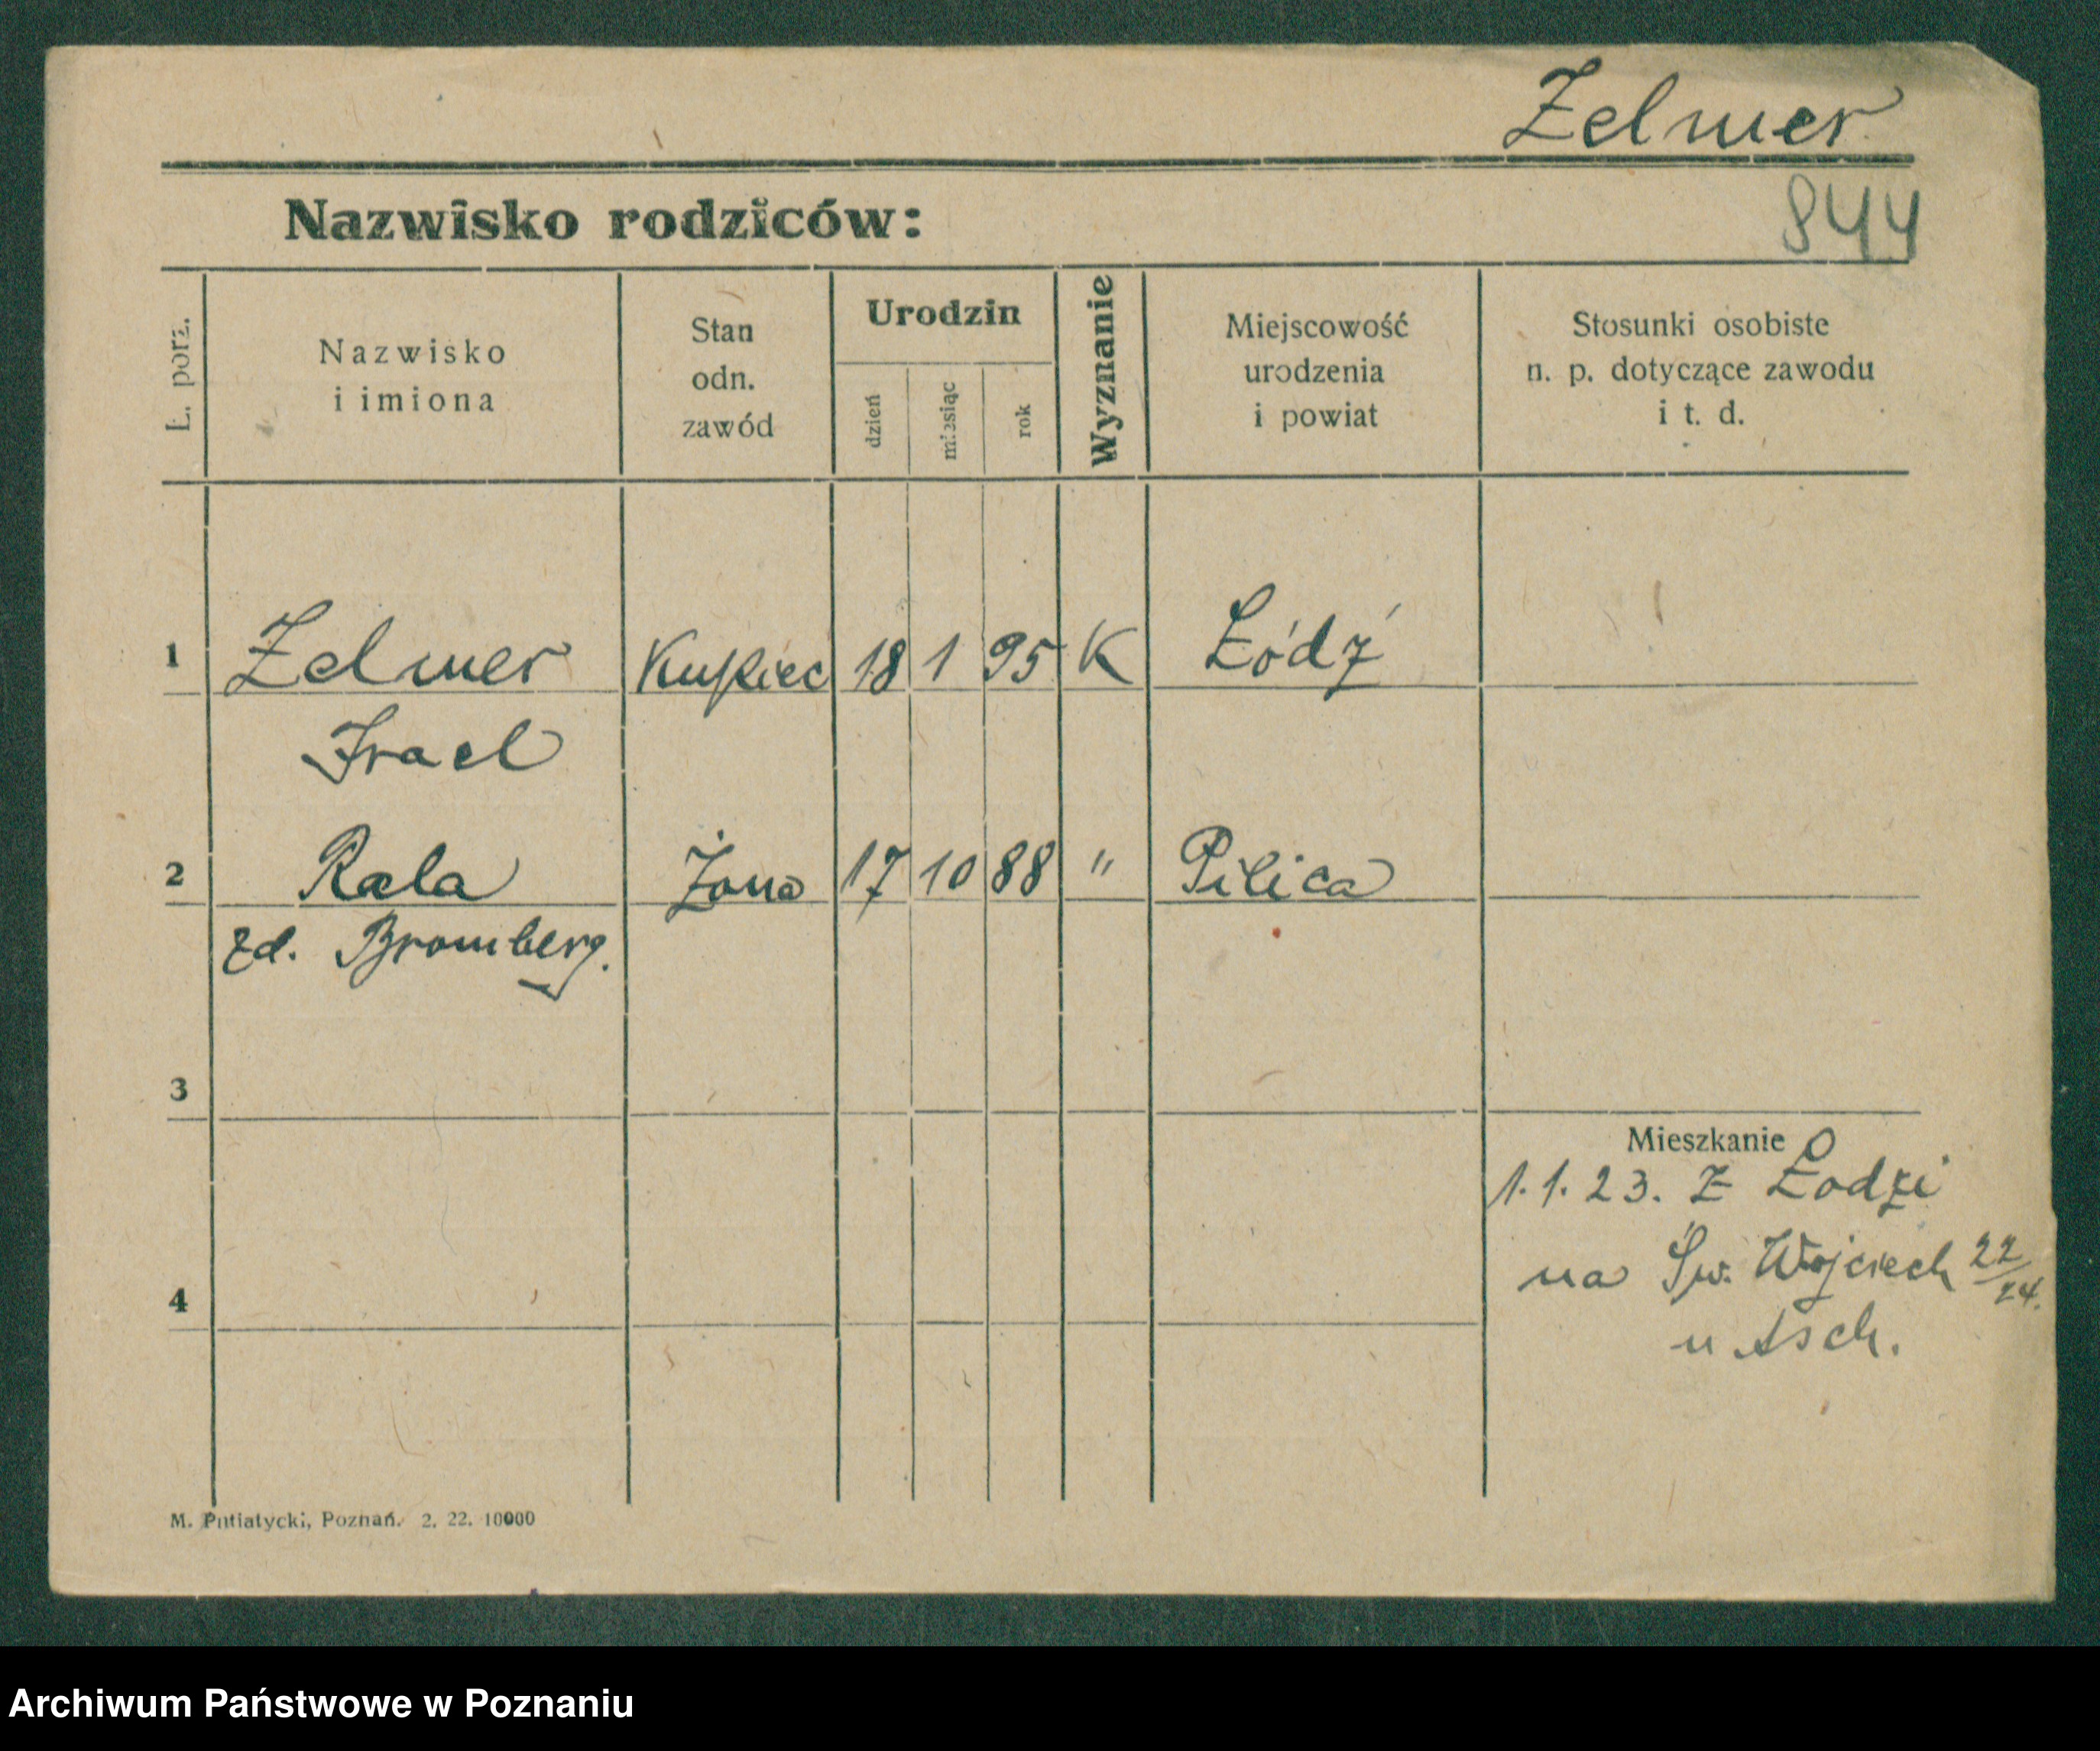 Zelmer
844
Nazwisko rodziców:
L. porz.
Nazwisko
i imiona
Stan
odn.
zawód
Urodzin
dzień
miesiąc
rok
Wyznanie
Miejscowość
urodzenia
i powiat
Stosunki osobiste
n. p. dotyczące zawodu
i t. d.
1 Zelmer Kupiec 18 1 95 K Łódź
Israel
2 Rala Żona 17 10 88 " Pilica
zd. Bromberg.
3
Mieszkanie
1.1.23. z Łodzi
na Św. Wojciech 22/24.
u Asch.
4
M. Putiatycki, Poznań. 2. 22. 10000
Archiwum Państwowe w Poznaniu